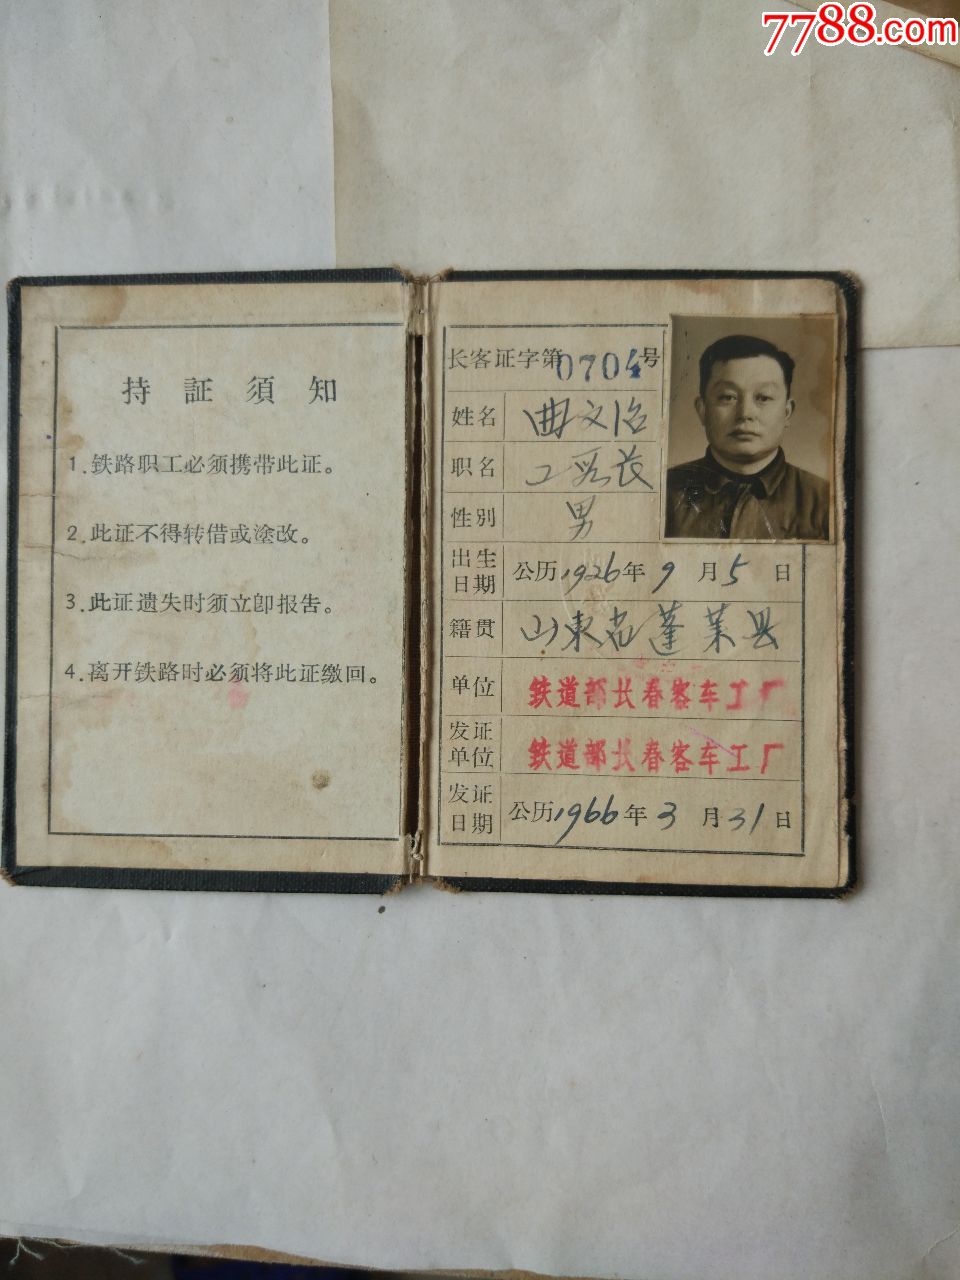 7788.com
持 証 須 知
1. 铁路职工必须携带此证。
2. 此证不得转借或塗改。
3. 此证遗失时须立卽报告。
4. 离开铁路时必须将此证缴回。
长客证字第0704号
姓名 曲文治
职名 工段长
性别 男
出生日期 公历1926年9月5日
籍贯 山東省蓬莱县
单位 铁道部长春客车工厂
发证单位 铁道部长春客车工厂
发证日期 公历1966年3月31日